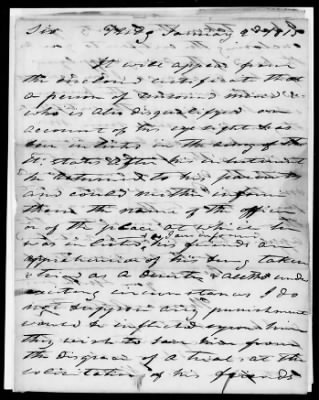 Sir Phila January 2d 1815
It will appear from
the enclosed certificate that
a person of unsound mind &
who is also disqualified on
account of his eye sight has
been enlisted in the army of the
U. States After his enlistment
he returned to his parents
and could neither inform
them the name of the officer
or of the place at which he
was enlisted, his friends are
apprehensive of his being taken
up as a deserter & altho under
existing circumstances I do
not suppose any punishment
would be inflicted upon him
they wish to save him from
the disgrace of a trial at the
solicitation of his friends